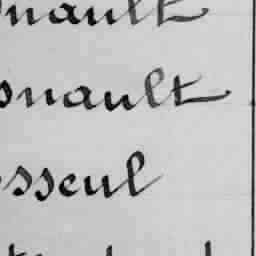 nault
snault
sseul